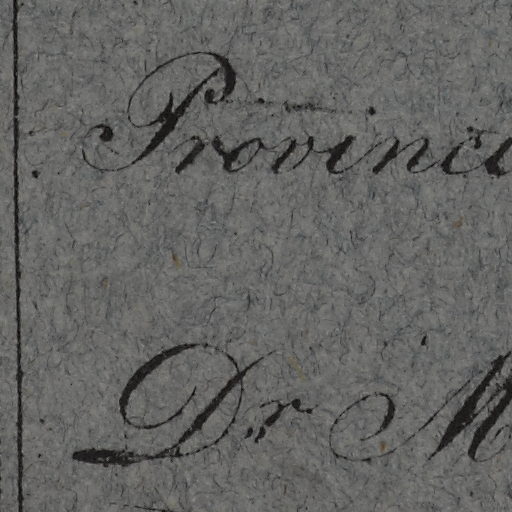 Provinci
Dr. M